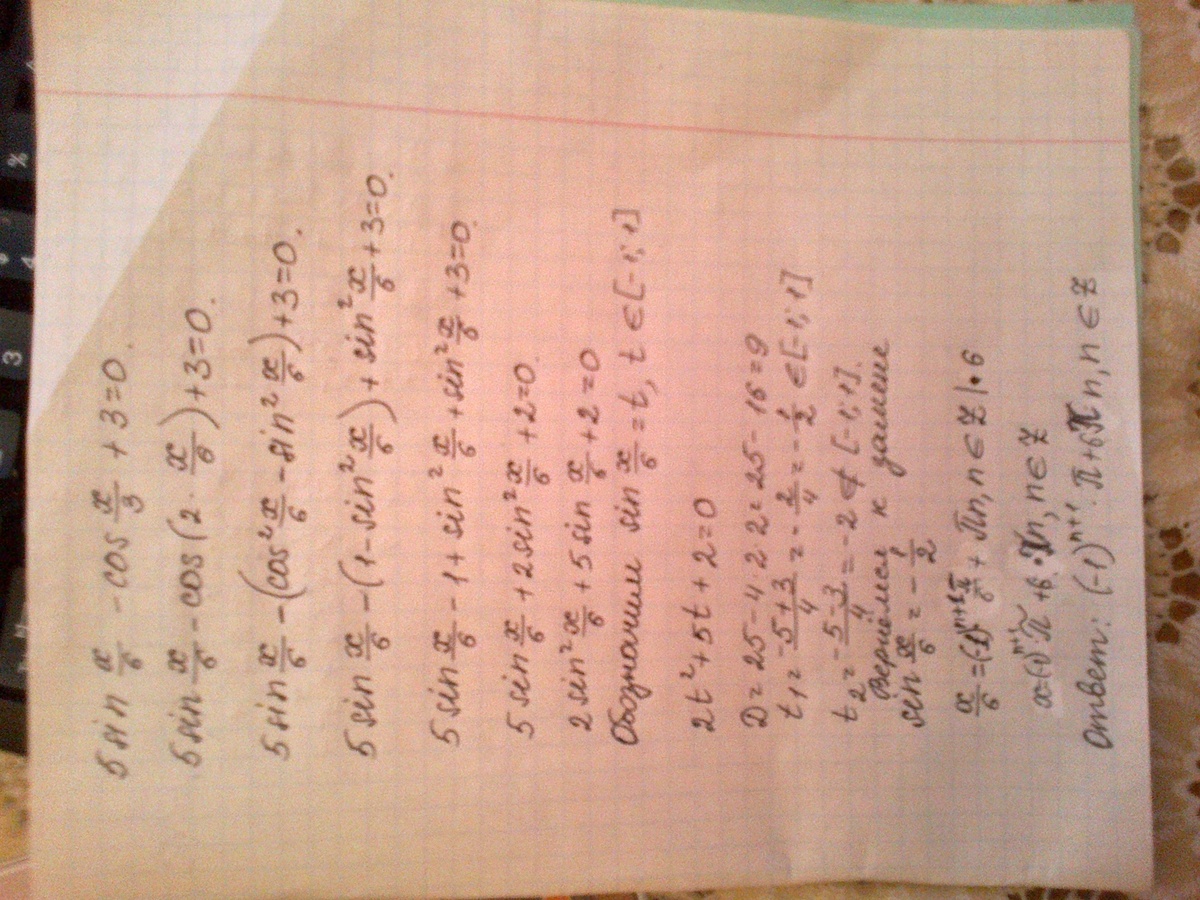 5 sin x/6 - cos x/3 + 3 = 0.
5 sin x/6 - cos (2 · x/6) + 3 = 0.
5 sin x/6 - (cos² x/6 - sin² x/6) + 3 = 0.
5 sin x/6 - (1 - sin² x/6) + sin² x/6 + 3 = 0.
5 sin x/6 - 1 + sin² x/6 + sin² x/6 + 3 = 0.
5 sin x/6 + 2 sin² x/6 + 2 = 0.
2 sin² x/6 + 5 sin x/6 + 2 = 0
Обозначим sin x/6 = t, t ∈ [-1; 1]
2t² + 5t + 2 = 0
D = 25 - 4 · 2 · 2 = 25 - 16 = 9
t₁ = (-5+3)/4 = -2/4 = -1/2 ∈ [-1; 1]
t₂ = (-5-3)/4 = -2 ∉ [-1; 1].
Вернёмся к замене
sin x/6 = -1/2
x/6 = (-1)ⁿ⁺¹ π/6 + πn, n ∈ Z | · 6
x = (-1)ⁿ⁺¹ π + 6 · πn, n ∈ Z
Ответ: (-1)ⁿ⁺¹ · π + 6πn, n ∈ Z